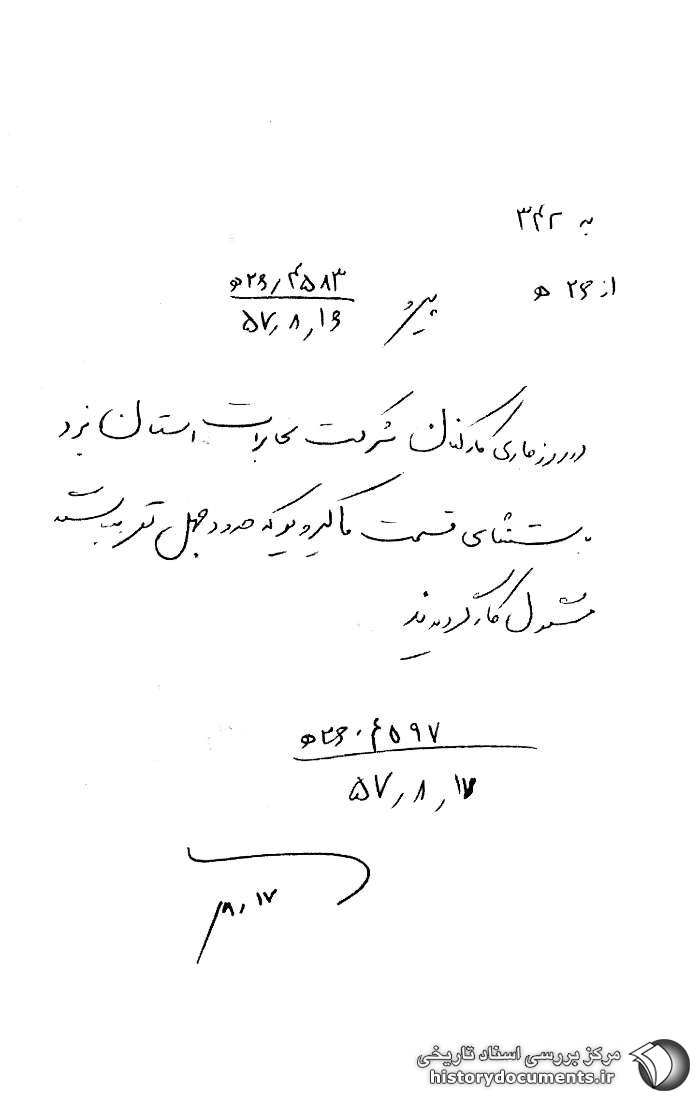 به ۳۴۲
از ۲۶ ه
پیرو ۴۵۸۳/ه۲۶
۵۷/۸/۱۶
در روز جاری کارکنان شرکت مخابرات استان یزد
به استثنای قسمت ماکروویو که حدود چهل نفر میباشند
مشغول کار گردیدند
۴۵۹۷/ه۲۶
۵۷/۸/۱۷
۸/۱۷
مرکز بررسی اسناد تاریخی
historydocuments.ir